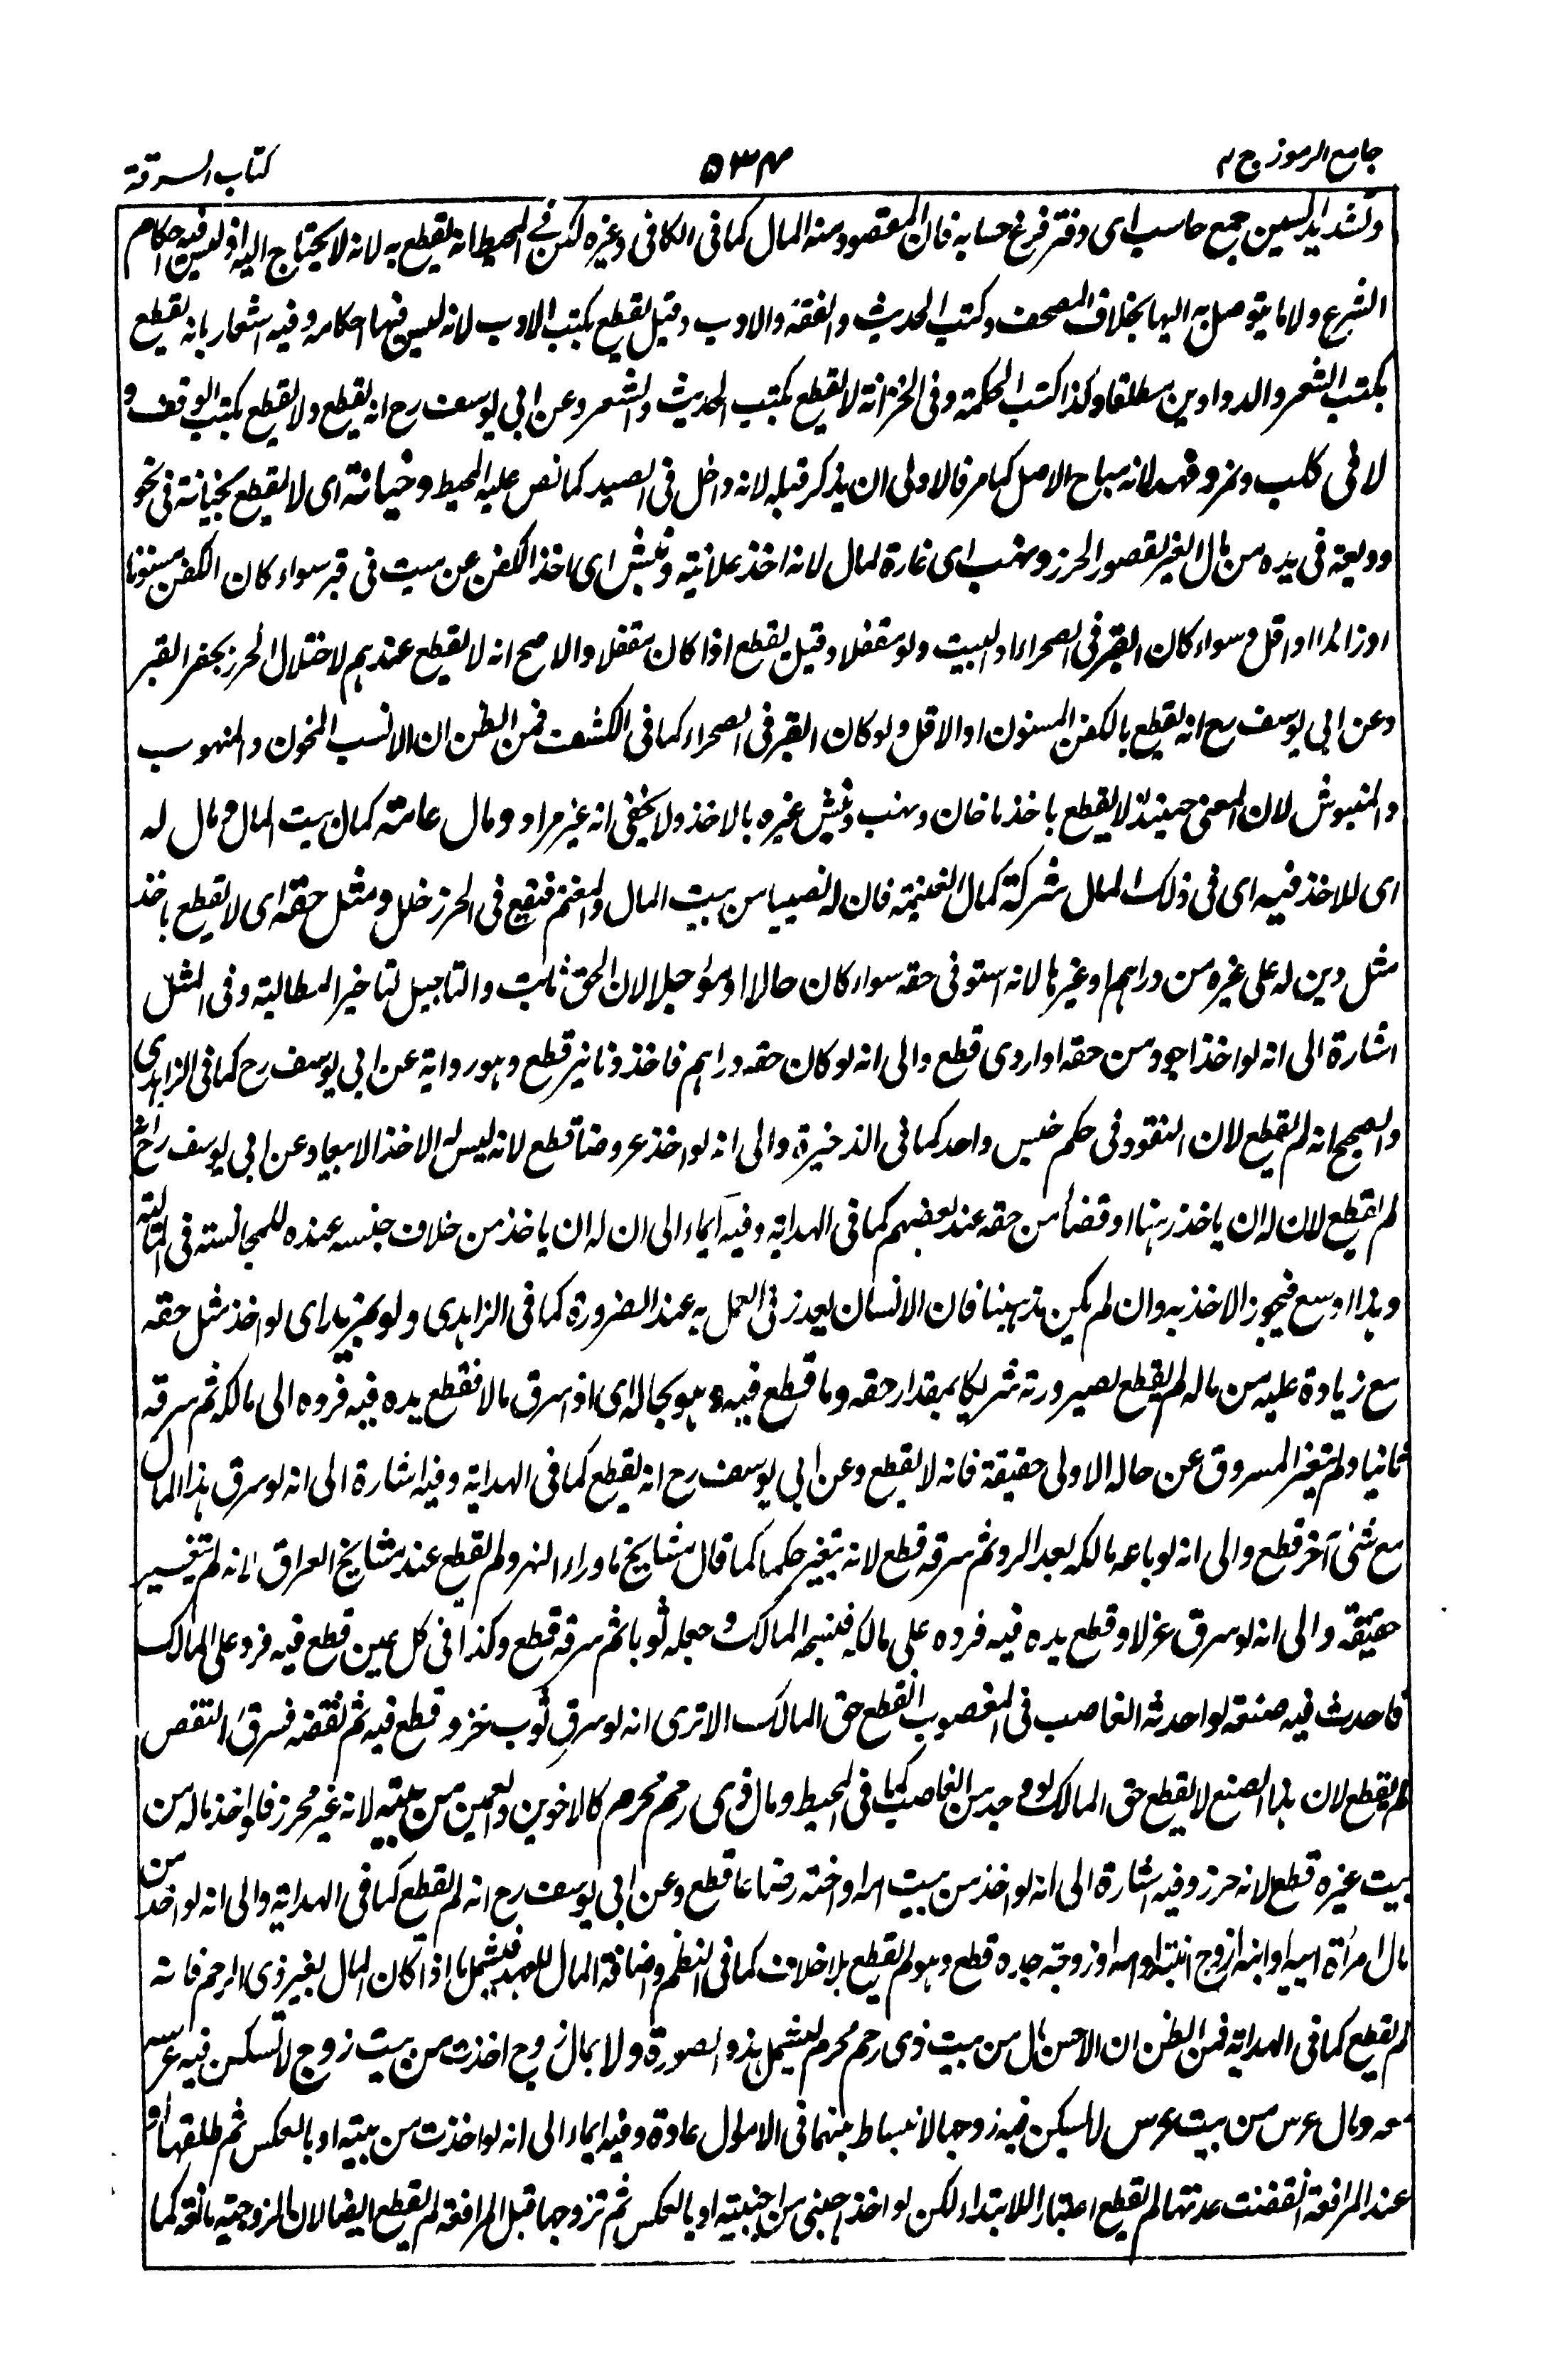 جامع الرموز ج ٢
٥٣٤
كتاب السرقة
وتشديد السين جمع حاسب اى دفتر فرغ حسابه فان المقصود منه المال كما فى الكافى وغيره لكن فى المحيط انه يقطع به لانه لا يحتاج اليه اذ ليس فيه احكام
الشرع ولا ما يتوصل به اليها بخلاف المصحف وكتب الحديث والفقه والادب وقيل يقطع بكتب الادب لانه ليس فيها احكامه وفيه اشعار بانه يقطع
بكتب الشعر والدواوين مطلقا وكذا كتب الحكمة وفى الخزانة لا يقطع بكتب الحديث والشعر وعن ابى يوسف رح انه يقطع ولا يقطع بكتب الوقف و
لا فى كلب ونمر وفهد لانه مباح الاصل كما مر فالاولى ان يذكر قبله لانه داخل فى الصيد كما نص عليه المحيط وخيانة اى لا يقطع بخيانة فى نحو
وديعة فى يده من مال الغير لقصور الحرز ونهب اى غارة لمال لانه اخذ علانية ونبش اى اخذ الكفن عن ميت فى قبر سواء كان الكفن مسنونا
او زائدا او اقل وسواء كان القبر فى الصحراء او البيت ولو مقفلا وقيل يقطع اذا كان مقفلا والاصح انه لا يقطع عندهم لاختلال الحرز بحفر القبر
وعن ابى يوسف رح انه يقطع بالكفن المسنون او الاقل ولو كان القبر فى الصحراء كما فى الكشف فمن الظن ان الانسب المخون والمنهوب
والمنبوش لان المعنى حينئذ لا يقطع باخذ ما خان ونهب ونبش غيره بالاخذ ولا يخفى انه غير مراد ومال عامة كمال بيت المال ومال له
اى للاخذ فيه اى فى ذلك المال شركة كمال الغنيمة فان له نصيبا من بيت المال والمغنم فيقع فى الحرز خلل ومثل حقه اى لا يقطع باخذ
مثل دين له على غيره من دراهم او غيرها لانه استوفى حقه سواء كان حالا او مؤجلا لان الحق ثابت والتاجيل لتاخير المطالبة وفى المثل
اشارة الى انه لو اخذ اجود من حقه او اردى قطع والى انه لو كان حقه دراهم فاخذ دنانير قطع وهو رواية عن ابى يوسف رح كما فى الزاهدى
والصحيح انه لم يقطع لان النقود فى حكم جنس واحد كما فى الذخيرة والى انه لو اخذ عروضا قطع لانه ليس له الاخذ الا بيعا وعن ابى يوسف رح انه
لم يقطع لان له ان ياخذ رهنا او قضاء من حقه عند بعضهم كما فى الهداية وفيه ايماء الى ان له ان ياخذ من خلاف جنسه عنده للمجانسة فى المالية
وهذا اوسع فيجوز الاخذ به وان لم يكن مذهبنا فان الانسان يعذر فى العمل به عند الضرورة كما فى الزاهدى ولو بمزيد اى لو اخذ مثل حقه
مع زيادة عليه من ماله لم يقطع لصيرورته شريكا بمقدار حقه وما قطع فيه وهو بحاله اى اذا سرق مالا فقطع يده فيه فرده الى مالكه ثم سرقه
ثانيا ولم يتغير المسروق عن حاله الاولى حقيقة فانه لا يقطع وعن ابى يوسف رح انه يقطع كما فى الهداية وفيه اشارة الى انه لو سرق هذا المال
مع شئ آخر قطع والى انه لو باعه مالكه بعد الرد ثم سرقه قطع لانه يتغير حكما كما قال مشايخ ماوراء النهر ولم يقطع عند مشايخ العراق لانه لم يتغير
حقيقة والى انه لو سرق غزلا وقطع يده فيه فرده على مالكه فنسجه المالك وجعله ثوبا ثم سرقه قطع وكذا فى كل عين قطع فيه فرد على المالك
فاحدث فيه صنعة لو احدثه الغاصب فى المغصوب انقطع حق المالك الا ترى انه لو سرق ثوب خز وقطع فيه ثم نقضه فسرق النقض
لم يقطع لان هذا الصنع لا يقطع حق المالك لو وجد من الغاصب كما فى المحيط ومال ذى رحم محرم كالاخوين والعمين من بيته لانه غير محرز فلو اخذ ماله من
بيت غيره قطع لانه حرز وفيه اشارة الى انه لو اخذ من بيت امه او اخته رضاعا قطع وعن ابى يوسف رح انه لم يقطع كما فى الهداية والى انه لو اخذ من
مال امرأة ابيه او ابنه او زوج ابنته او امه او زوجة جده قطع وهو لم يقطع بلا خلاف كما فى النظم واضافة المال للعهد فيشمل ما اذا كان المال لغير ذى الرحم فانه
لم يقطع كما فى الهداية فمن الظن ان الاحسن مال من بيت ذى رحم محرم ليشمل هذه الصورة ولا بمال زوج اخذت من بيت زوج لا تسكن فيه عرسه
معه ومال عرس من بيت عرس لا يسكن فيه زوجها لانبساط بينهما فى الاموال عادة وفيه ايماء الى انه لو اخذت من بيته او بالعكس ثم طلقها و
عند المرافعة انقضت عدتها لم يقطع اعتبارا للابتداء لكن لو اخذ اجنبى من اجنبية او بالعكس ثم تزوجها قبل المرافعة لم يقطع ايضا لان الزوجية مانعة كما